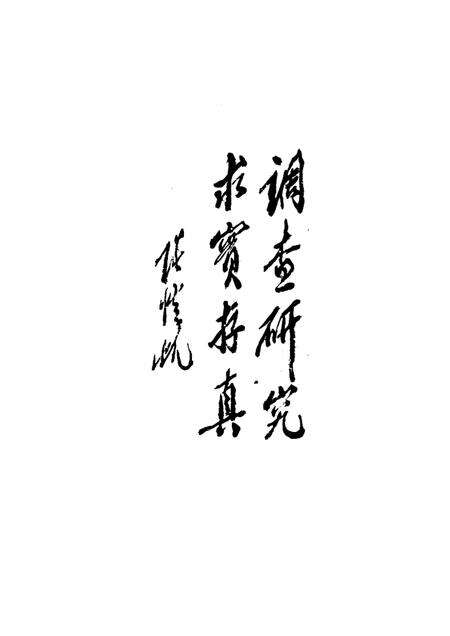 調查研究
求實存真